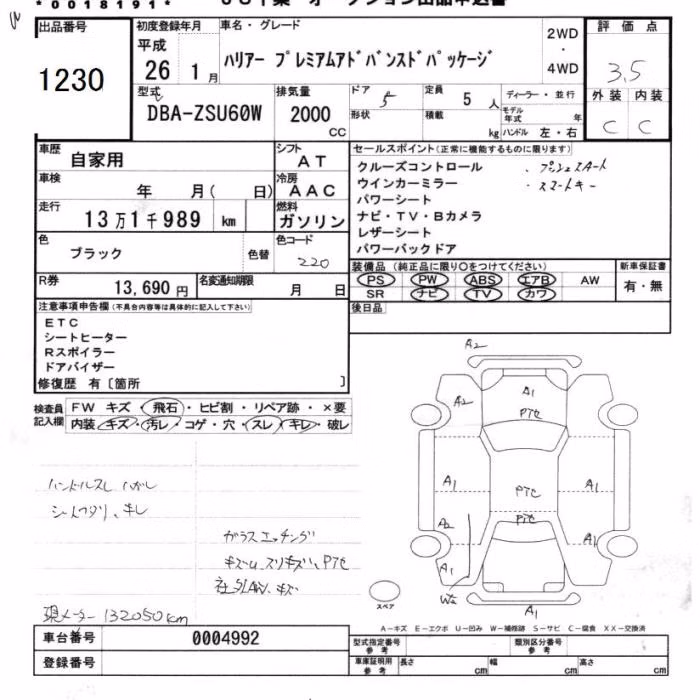 *0018191*
出品番号
1230
初度登録年月
平成
26 1月
車名・グレード
ハリアー プレミアムアドバンスドパッケージ
2WD
・
4WD
評価点
3.5
外装 内装
C C
型式
DBA-ZSU60W
排気量
2000
CC
ドア
5
定員
5人
形状
積載
kg
ディーラー・並行
モデル年式 年
ハンドル 左・右
車歴
自家用
シフト
AT
車検
年 月( 日)
冷房
AAC
走行
13万1千989 km
燃料
ガソリン
色
ブラック
色替
色コード
220
R券
13,690円
名変通知期限
月 日
セールスポイント(正常に機能するものに限ります)
クルーズコントロール ・プッシュスタート
ウインカーミラー ・スマートキー
パワーシート
ナビ・TV・Bカメラ
レザーシート
パワーバックドア
装備品(純正品に限り○をつけてください)
PS PW ABS エアB AW
SR ナビ TV カワ
新車保証書
有・無
後日品
注意事項申告欄(不具合内容等は具体的に記入して下さい)
ETC
シートヒーター
Rスポイラー
ドアバイザー
修復歴 有〔箇所 〕
検査員記入欄
FW キズ・飛石・ヒビ割・リペア跡・×要
内装 キズ・汚レ・コゲ・穴・スレ・キレ・破レ
ハンドルスレ ハガレ
シートヘタリ、キレ
ガラスエッチング
現メーター132050km
A2
A2
A1
PTC
A1
PTC
A1
A2
PTC
A1
A1
W2
A1
スペア
A−キズ E−エクボ U−凹み W−補修跡 S−サビ C−腐食 XX−交換済
車台番号
0004992
登録番号
型式指定番号 参考
類別区分番号 参考
車庫証明用 参考
長さ cm
幅 cm
高さ cm